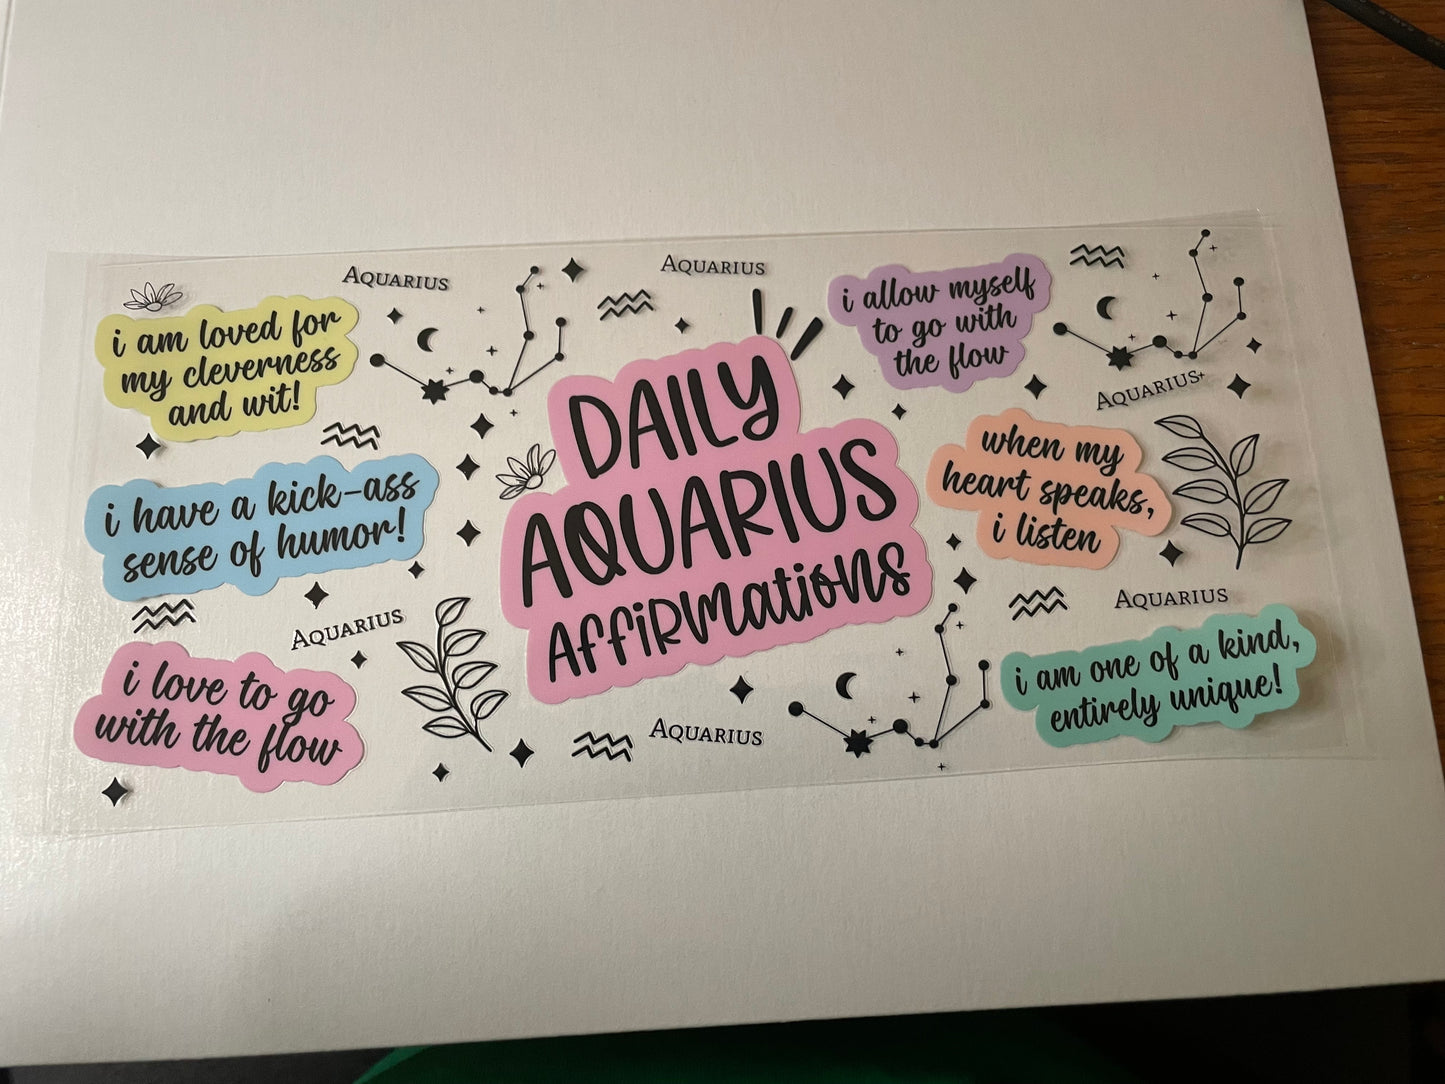 Aquarius
Aquarius
i am loved for
my cleverness
and wit!
i have a kick-ass
sense of humor!
Aquarius
i love to go
with the flow
DAILY
AQUARIUS
AFFIRMATIONS
Aquarius
i allow myself
to go with
the flow
Aquarius
when my
heart speaks,
i listen
Aquarius
i am one of a kind,
entirely unique!